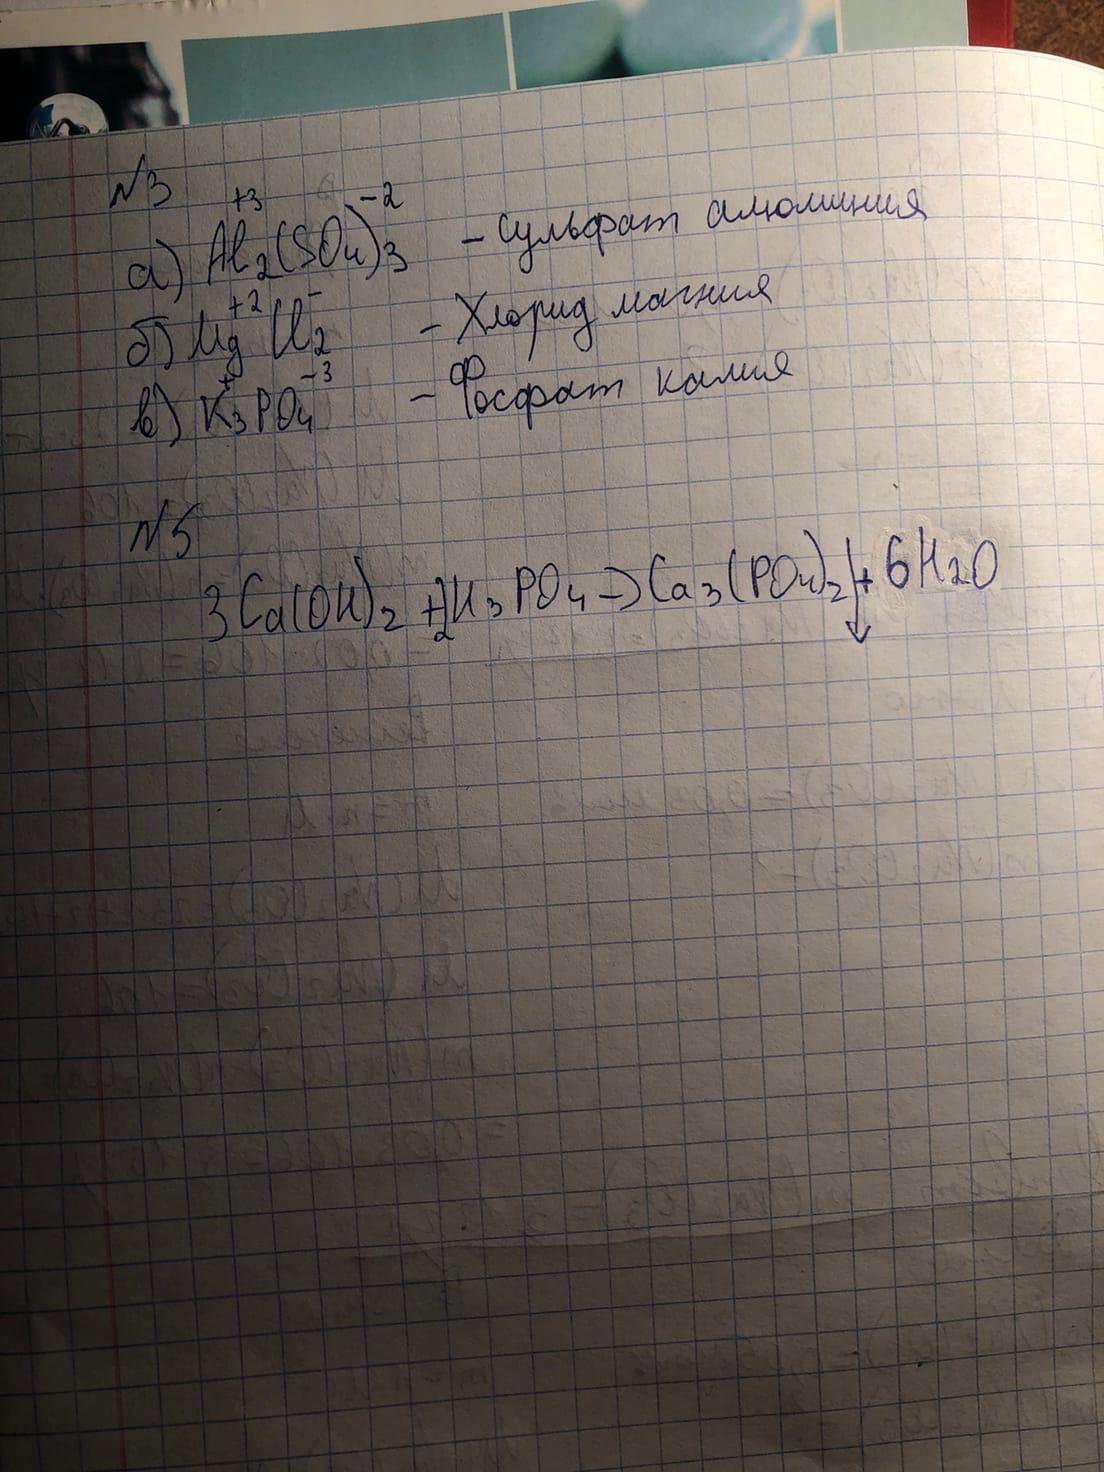 №3
а) Al₂⁺³(SO₄)₃⁻² - Сульфат алюминия
б) Mg⁺²Cl₂⁻ - Хлорид магния
в) K₃⁺PO₄⁻³ - Фосфат калия
№5
3Ca(OH)₂ + 2H₃PO₄ → Ca₃(PO₄)₂↓ + 6H₂O